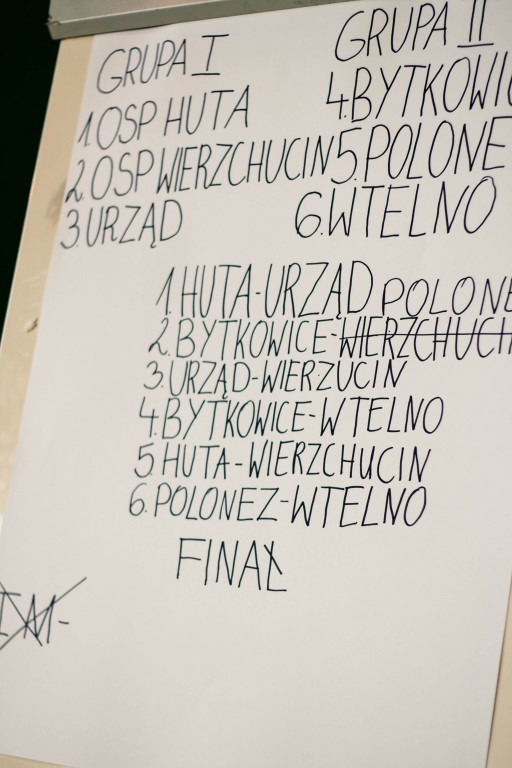 GRUPA I
1. OSP HUTA
2. OSP WIERZCHUCIN
3. URZĄD
GRUPA II
4. BYTKOWIC
5. POLONE
6. WTELNO
1. HUTA-URZĄD POLONE
2. BYTKOWICE-WIERZCHUCI
3. URZĄD-WIERZUCIN
4. BYTKOWICE-WTELNO
5 HUTA-WIERZCHUCIN
6. POLONEZ-WTELNO
FINAŁ